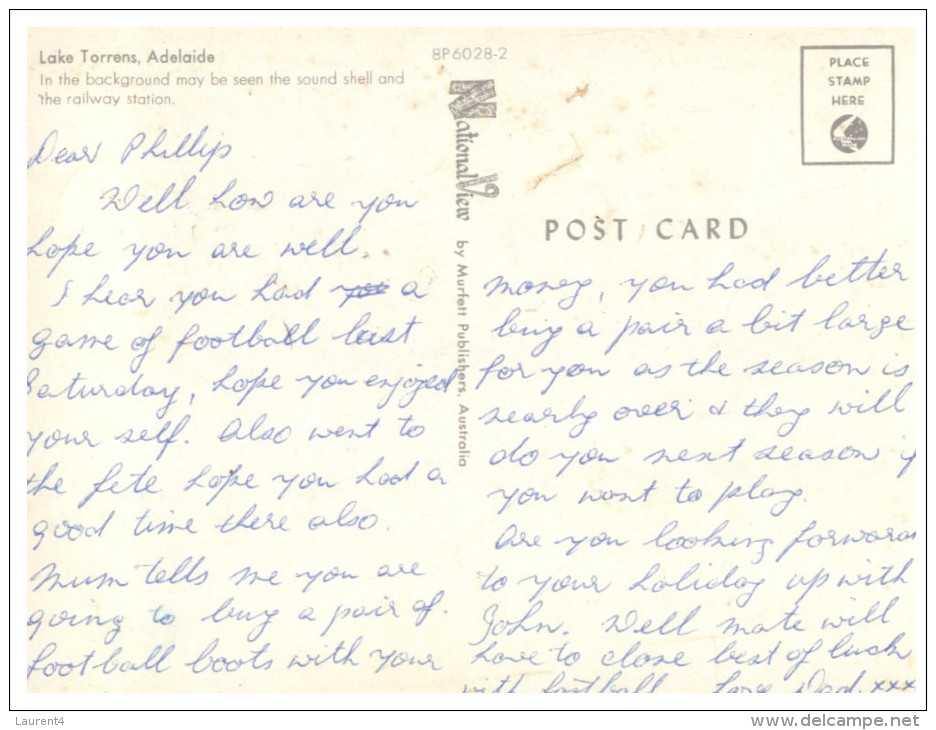 Lake Torrens, Adelaide
In the background may be seen the sound shell and
the railway station.
8P6028-2
PLACE
STAMP
HERE
National View by Murfett Publishers, Australia
POST CARD
Dear Phillip
Well how are you
hope you are well.
I hear you had a
game of football last
Saturday, hope you enjoyed
your self. Also went to
the fete hope you had a
good time there also.
Mum tells me you are
going to buy a pair of
football boots with your
money, you had better
buy a pair a bit large
for you as the season is
nearly over & they will
do you next season if
you want to play.
Are you looking forward
to your holiday up with
John. Well mate will
have to close best of luck
with football Love Dad. xxx
Laurent4
www.delcampe.net